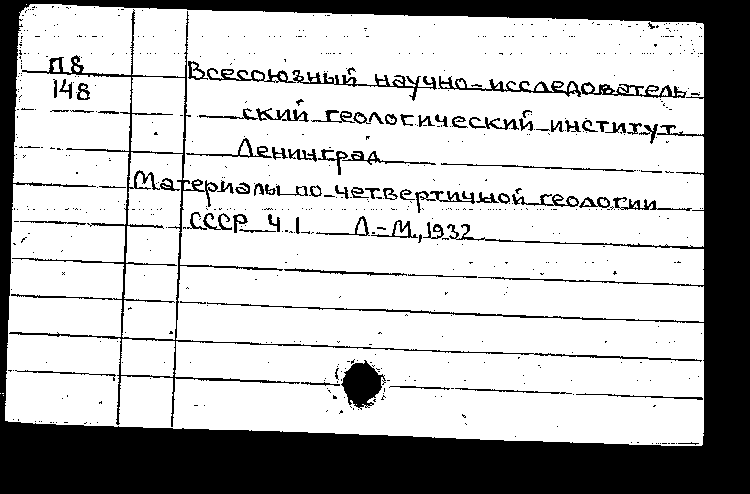 П8
148
Всесоюзный научно-исследователь-
ский геологический институт.
Ленинград
Материалы по четвертичной геологии
СССР Ч I Л.-М., 1932